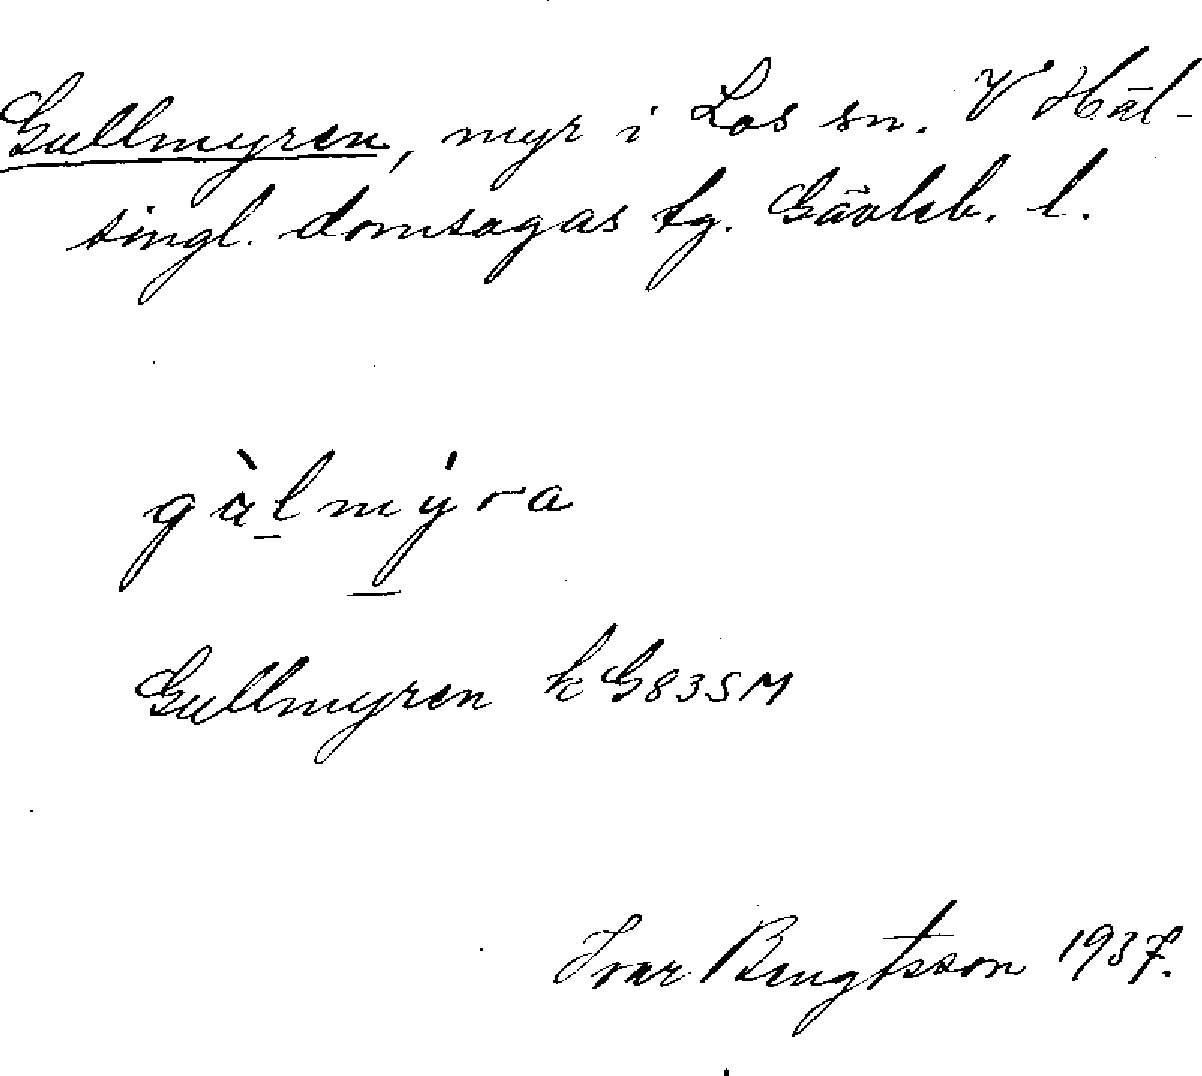 Gullmyren, myr i Los sn. V Häl-
singl. domsagas tg. Gävleb. l.
gàlmýra
Gullmyren kG83SM
Ivar Bengtsson 1937.